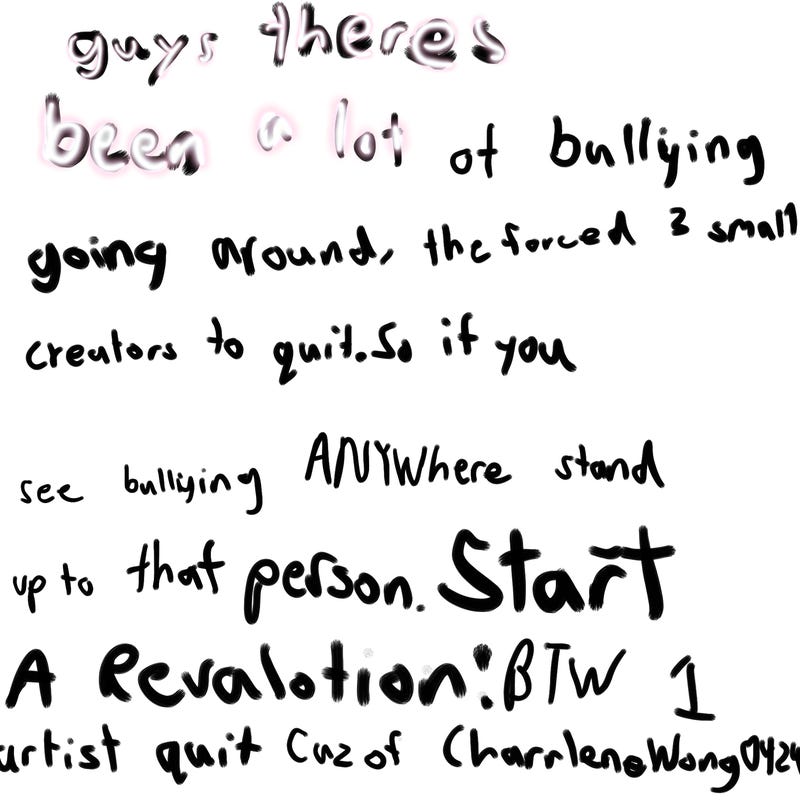 guys theres
been a lot of bullying
going around, the forced 3 small
creators to quit. So if you
see bullying ANYWhere stand
up to that person. Start
A Revalotion! BTW 1
artist quit Cuz of CharrleneWong0424